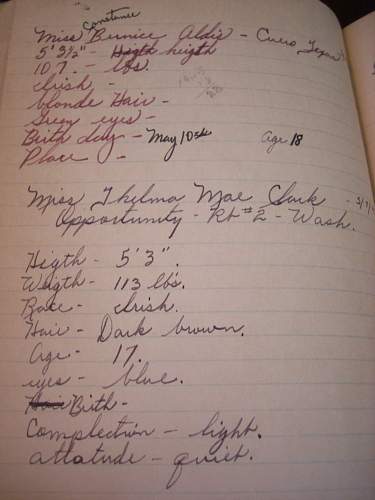 Constance
Miss Bernice Aldis - Cuero, Texas
5' 3½" - Higth heigth
107. - lbs.
Irish -
blonde Hair -
Grey eyes -
Birth day - May 10th Age 18
Place -
Miss Thelma Mae Clark
Opportunity - Rt #2 - Wash.
Higth - 5' 3".
Weigth - 113 lbs.
Race - Irish.
Hair - Dark brown.
Age - 17.
eyes - blue.
Hair Birth -
Complection - light.
attatude - quiet.